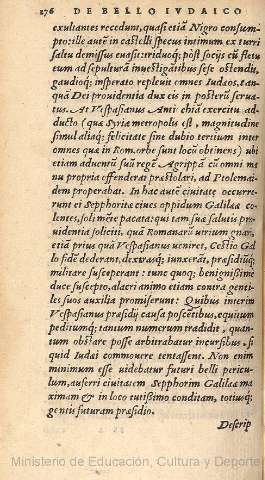 276 DE BELLO IVDAICO
exultantes recedunt, quasi etiã Nigro consum-
pto: ille autẽ in castelli specus intimum ex turri
saltu demissus euasit: triduoq; pòst socijs cũ fletu
eum ad sepulturã inuestigãtibus sese ostendit,
gaudioq; insperato repleuit omnes Iudæos, tan-
quã Dei prouidentia dux eis in posterũ serua-
tus. At Vespasianus Antiochia exercitu ad-
ducto (quæ Syriæ metropolis est, magnitudine
simul aliaq; felicitate sine dubio tertium inter
omnes quæ in Rom. orbe sunt locũ obtinens) ubi
etiam aduentũ suũ regẽ Agrippã cũ omni ma
nu propria offenderat præstolari, ad Ptolemai-
dem properabat. In hac autẽ ciuitate occurre-
runt ei Sepphoritæ ciues oppidum Galilææ co-
lentes, soli mẽte pacata: qui tam suæ salutis pro-
uidentia soliciti, quàm Romanarũ uirium gnari,
etiã prius quã Vespasianus ueniret, Cestio Gal
lo fidẽ dederant, dextrasq; iunxerãt, præsidiũq;
militare susceperant: tunc quoq; benignissimè
duce suscepto, alacri animo etiam contra genti-
les suos auxilia promiserunt: Quibus interim
Vespasianus præsidij causa poscẽtibus, equitum
peditumq; tantum numerum tradidit, quan-
tum obstare posse arbitrabatur incursibus, si
quid Iudæi commouere tentassent. Non enim
minimum esse uidebatur futuri belli pericu-
lum, auferri ciuitatem Sepphorim Galilææ ma
ximam & in loco tutissimo conditam, totiusq;
gentis futuram præsidio.
Descrip
Ministerio de Educación, Cultura y Deporte